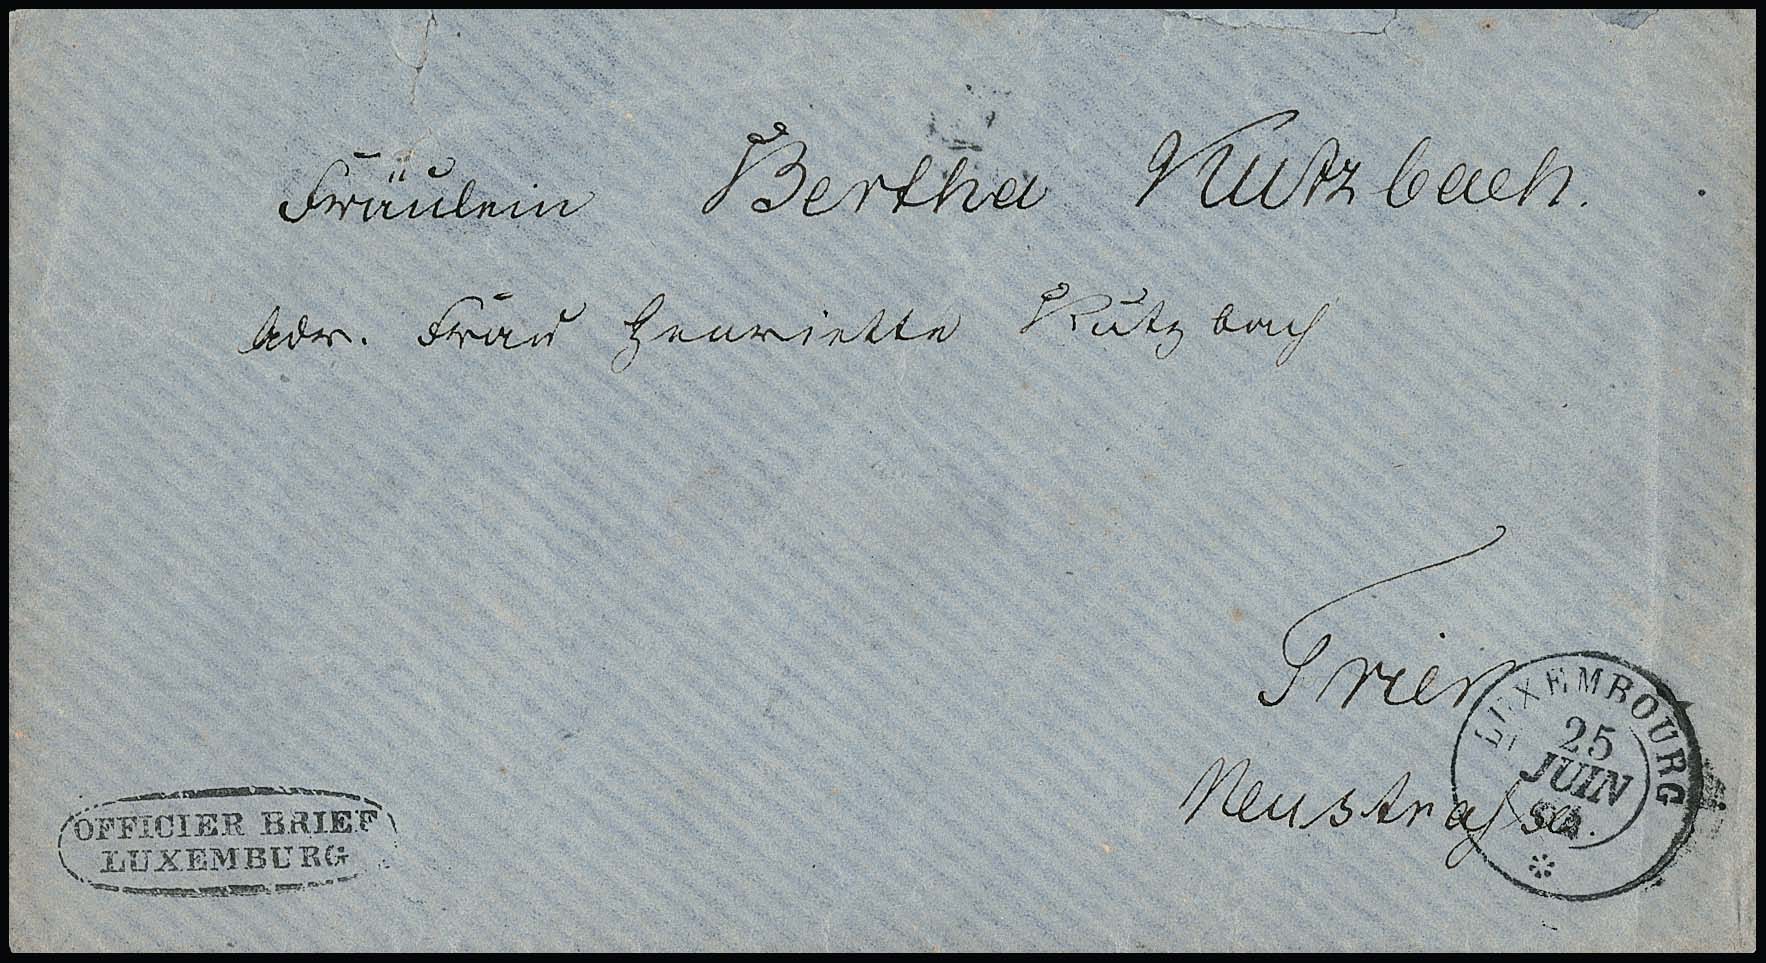 Fräulein Bertha Kutzbach.
Adr. Frau Henriette Kutzbach
Trier
Neustraſse.
LUXEMBOURG
25
JUIN
OFFICIER BRIEF
LUXEMBURG